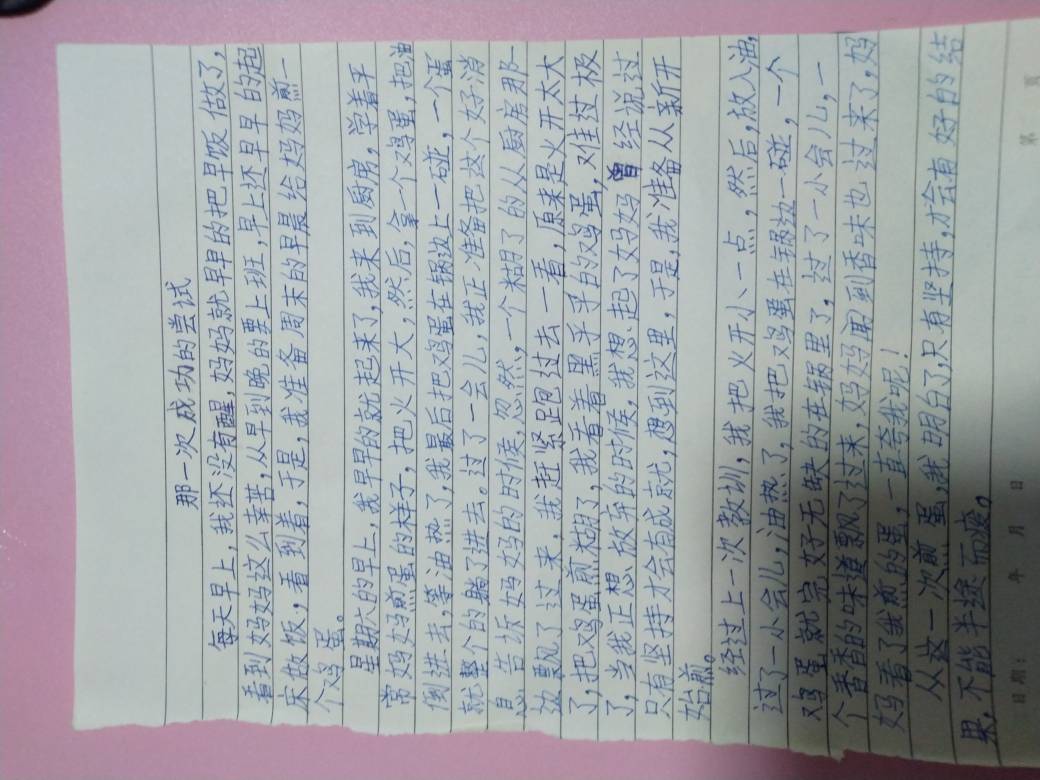 那一次成功的尝试
每天早上，我还没有醒，妈妈就早早的把早饭做了，
看到妈妈这么辛苦，从早到晚的要上班，早上还早早的起
床做饭，看到着，于是，我准备周末的早晨给妈妈煎一
个鸡蛋。
星期六的早上，我早早的就起来了，我来到厨房，学着平
常妈妈煎蛋的样子，把火开大，然后，拿一个鸡蛋，把油
倒进去，等油热了，我最后把鸡蛋在锅边上一碰，一个蛋
就整个的躺了进去。过了一会儿，我正准备把这个好消
息告诉妈妈的时候，忽然，一个糊了的从厨房那一
边飘了过来，我赶紧跑过去一看，原来是火开太大
了，把鸡蛋煎糊了，我看着黑乎乎的鸡蛋，难过极
了，当我正想放弃的时候，我想起了妈妈曾经说过
只有坚持才会有成就，想到这里，于是，我准备从新开
始煎。
经过上一次教训，我把火开小一点，然后，放入油，
过了一小会儿，油热了，我把鸡蛋在锅边一碰，一个
鸡蛋就完好无缺的在锅里了，过了一小会儿，一
个香香的味道飘了过来，妈妈闻到香味也过来了，妈
妈看了我煎的蛋，一直夸我呢！
从这一次煎蛋，我明白了，只有坚持，才会有好的结
果，不能半途而废。
日期： 年 月 日 第 页